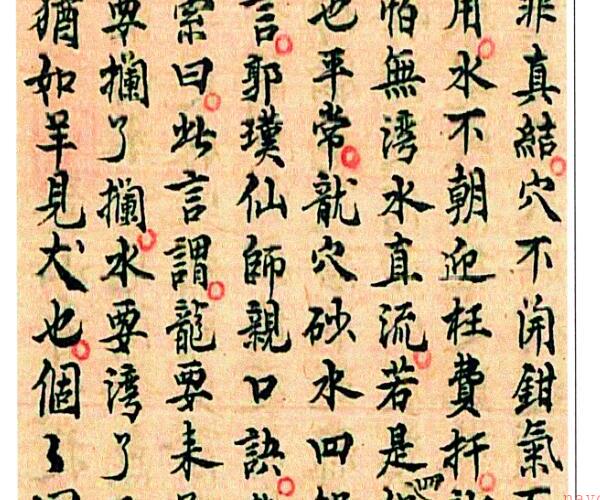 非真結穴不開鉗氣
用水不朝迎枉費扦
怕無湾水直流若是
也平常龍穴砂水四
言郭璞仙師親口訣
索曰此言謂龍要来
要攔了攔水要湾了
猶如羊見犬也個々